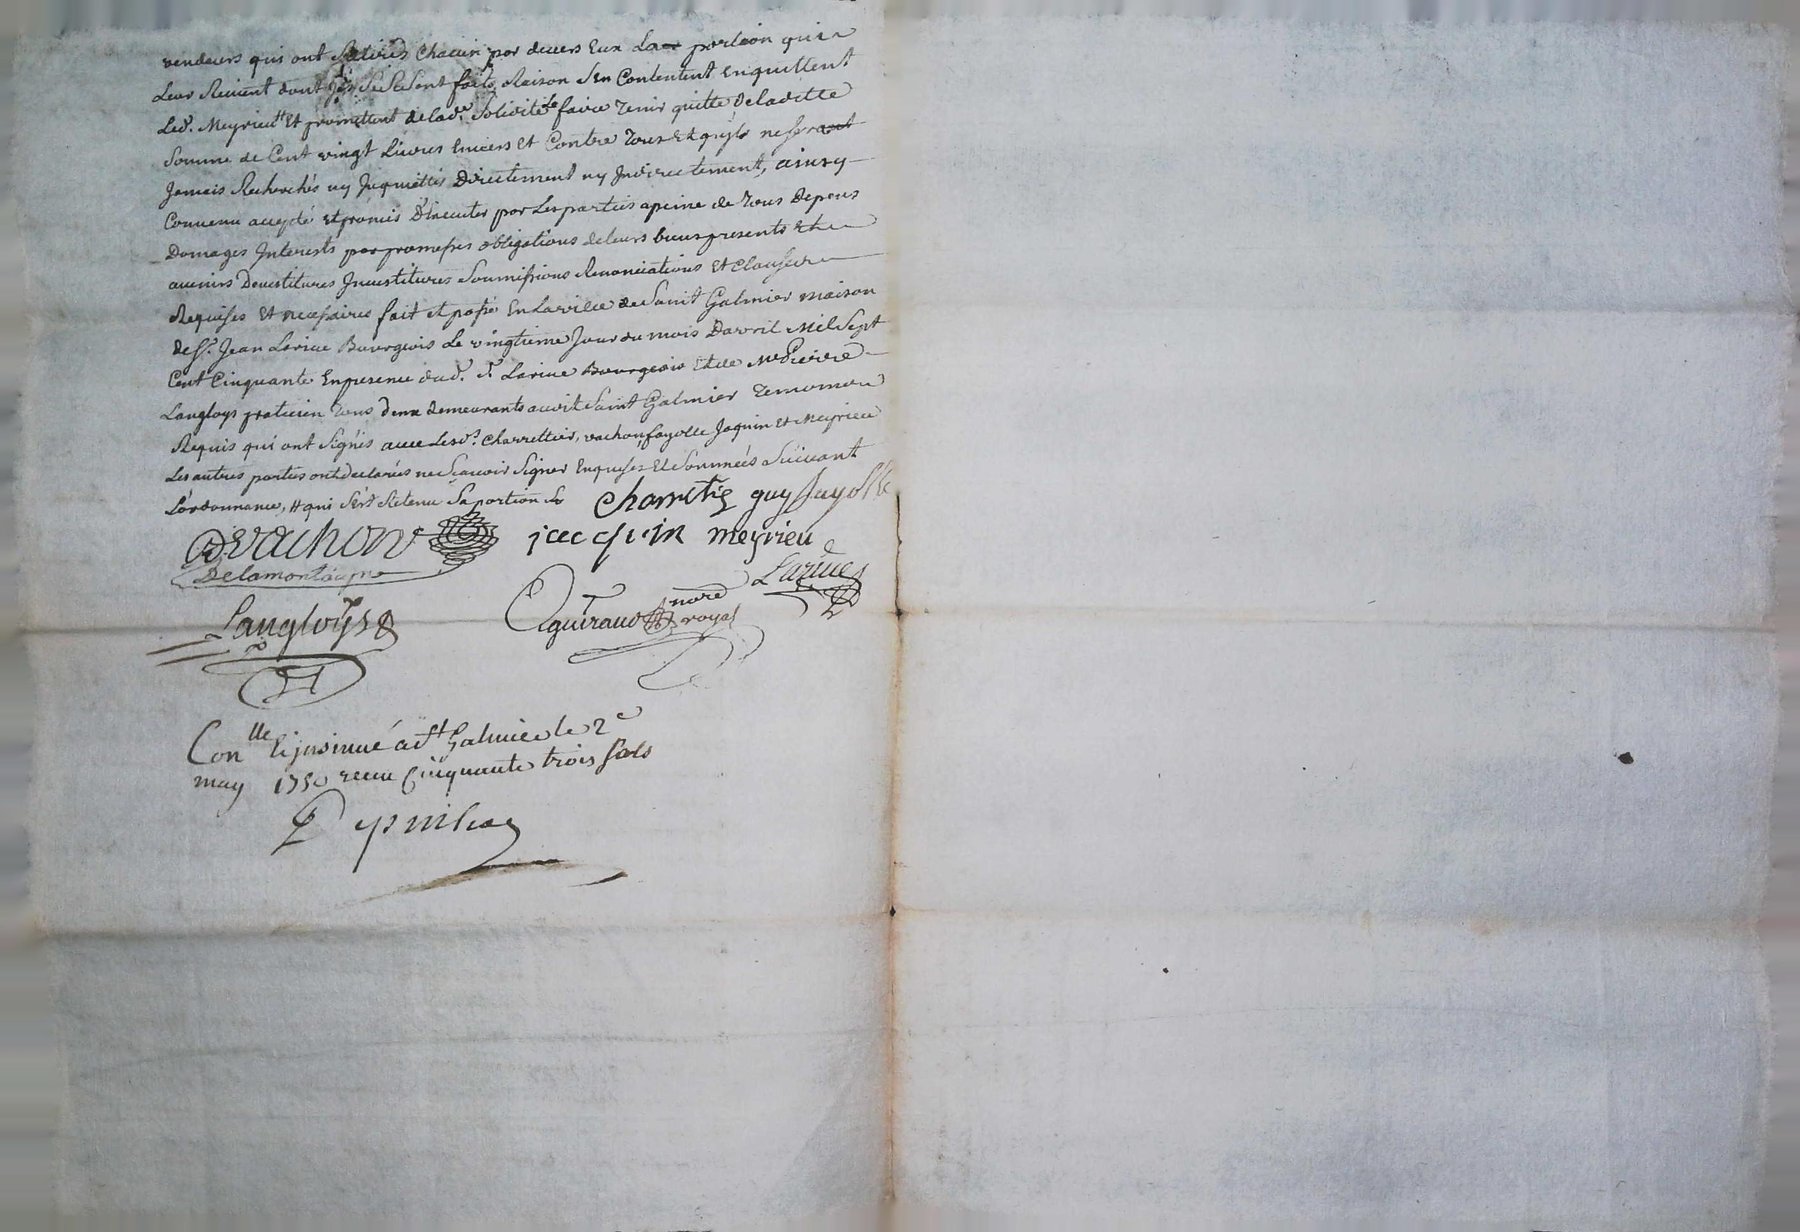 vendeurs qui ont Retirés Chacun par devers Eux La portion qui
Leur Revient dont Ils Se Sont faits Raison S'en Contentent Enquittent
Led. Meyrieu Et promettent delad. Solidité Le faire Tenir quitte deladitte
Somme de Cent vingt Livres Envers Et Contre Tous Et qu'ils ne seront
Jamais Recherchés ny Inquiettés Directement ny Indirectement, ainsy
Convenu accepté et promis D'Executer par Les parties apeine de Tous Depens
Domages Interests par promesses obligations de leurs biens presents Et
avenirs Devestitures Investitures Soumissions Renonciations Et Clauses
Requises Et necessaires fait et passé En La ville de Saint Galmier maison
de Sr. Jean Larive Bourgeois Le vingtieme Jour du mois Davril Mil Sept
Cent Cinquante En presence dud. Sr. Larive Bourgeois Et de Me Pierre
Langloys praticien Tous deux demeurants audit Saint Galmier Temoins
Requis qui ont Signés avec Lesd. Charrettier, vachon, fayolle Jaquin Et Meyrieu
Les autres parties ont declarées ne Scavoir Signer Enquises Et Sommées Suivant
L'ordonnance, # qui Retenu Sa portion
Charretie guy fayolle
vachon jacquin meyrieu
Delamontagne Larive
Langloys guiraud nore royal
Conlle & insinué a St Galmier le 2e
may 1750 receu Cinquante trois sols